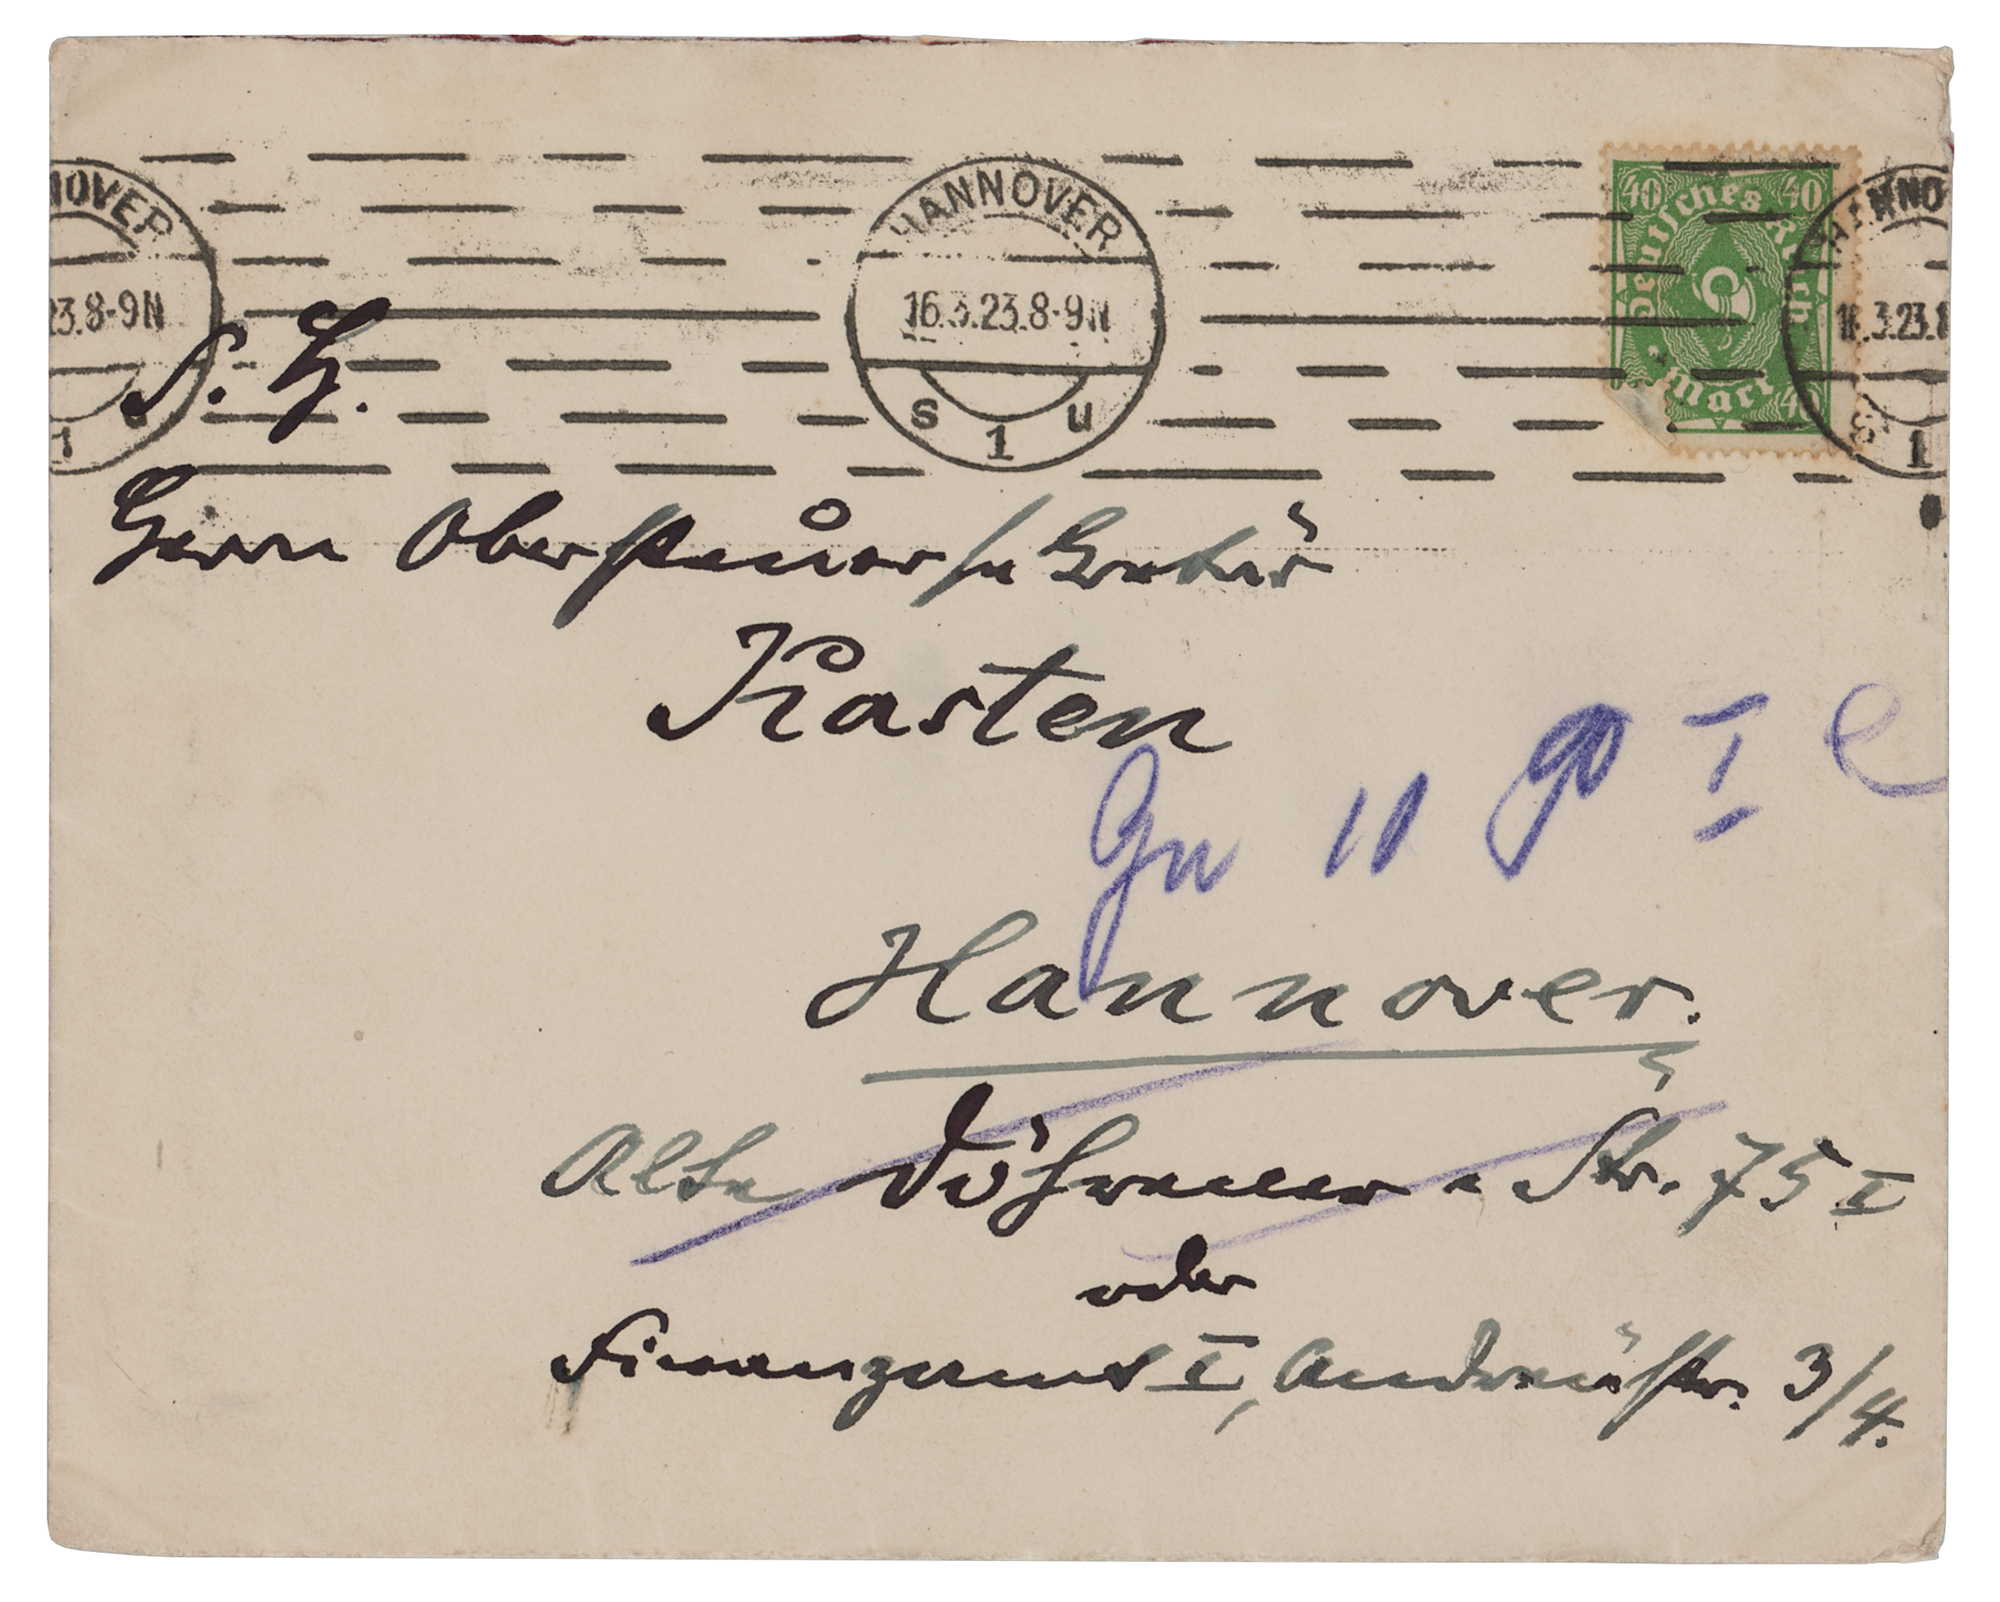 HANNOVER
16.3.23.8-9N
s 1 u
NOVER
23.8-9N
1
40 40
Deutsches Reich
Mark
40
HANNO
16.3.23.8
S
1
S. H.
Herrn Obersteuersekretär
Kasten
11
I
Hannover.
Alte Döhrener Str. 75 I
oder
Finanzamt I, Andreästr. 3/4.